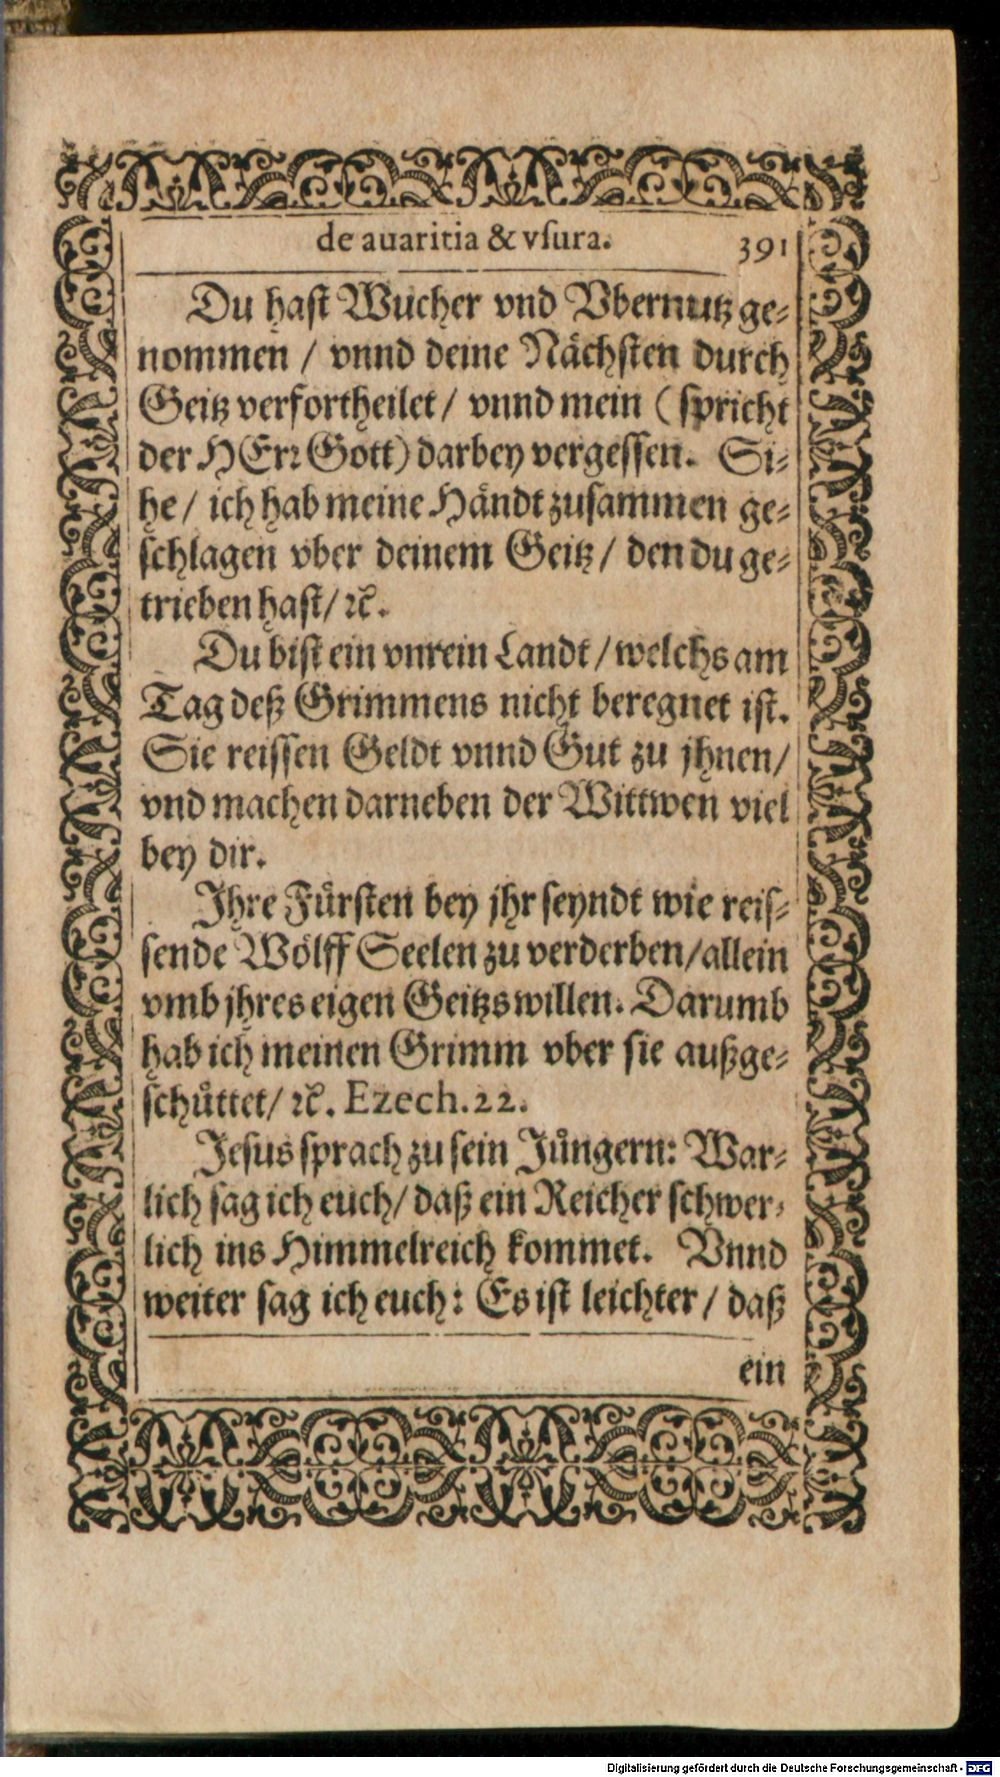 de auaritia & vſura. 391
Du haſt Wucher vnd Vbernutz ge-
nommen / vnnd deine Nächſten durch
Geitz verfortheilet / vnnd mein (ſpricht
der HErꝛ Gott) darbey vergeſſen. Si-
he / ich hab meine Händt zuſammen ge-
ſchlagen vber deinem Geitz / den du ge-
trieben haſt / ꝛc.
Du biſt ein vnrein Landt / welchs am
Tag deß Grimmens nicht beregnet iſt.
Sie reiſſen Geldt vnnd Gut zu jhnen /
vnd machen darneben der Wittwen viel
bey dir.
Ihre Fürſten bey jhr ſeyndt wie reiſ-
ſende Wölff Seelen zu verderben / allein
vmb jhres eigen Geitzs willen. Darumb
hab ich meinen Grimm vber ſie außge-
ſchuͤttet / ꝛc. Ezech. 22.
Jeſus ſprach zu ſein Juͤngern: War-
lich ſag ich euch / daß ein Reicher ſchwer-
lich ins Himmelreich kommet. Vnnd
weiter ſag ich euch: Es iſt leichter / daß
ein
Digitalisierung gefördert durch die Deutsche Forschungsgemeinschaft - DFG